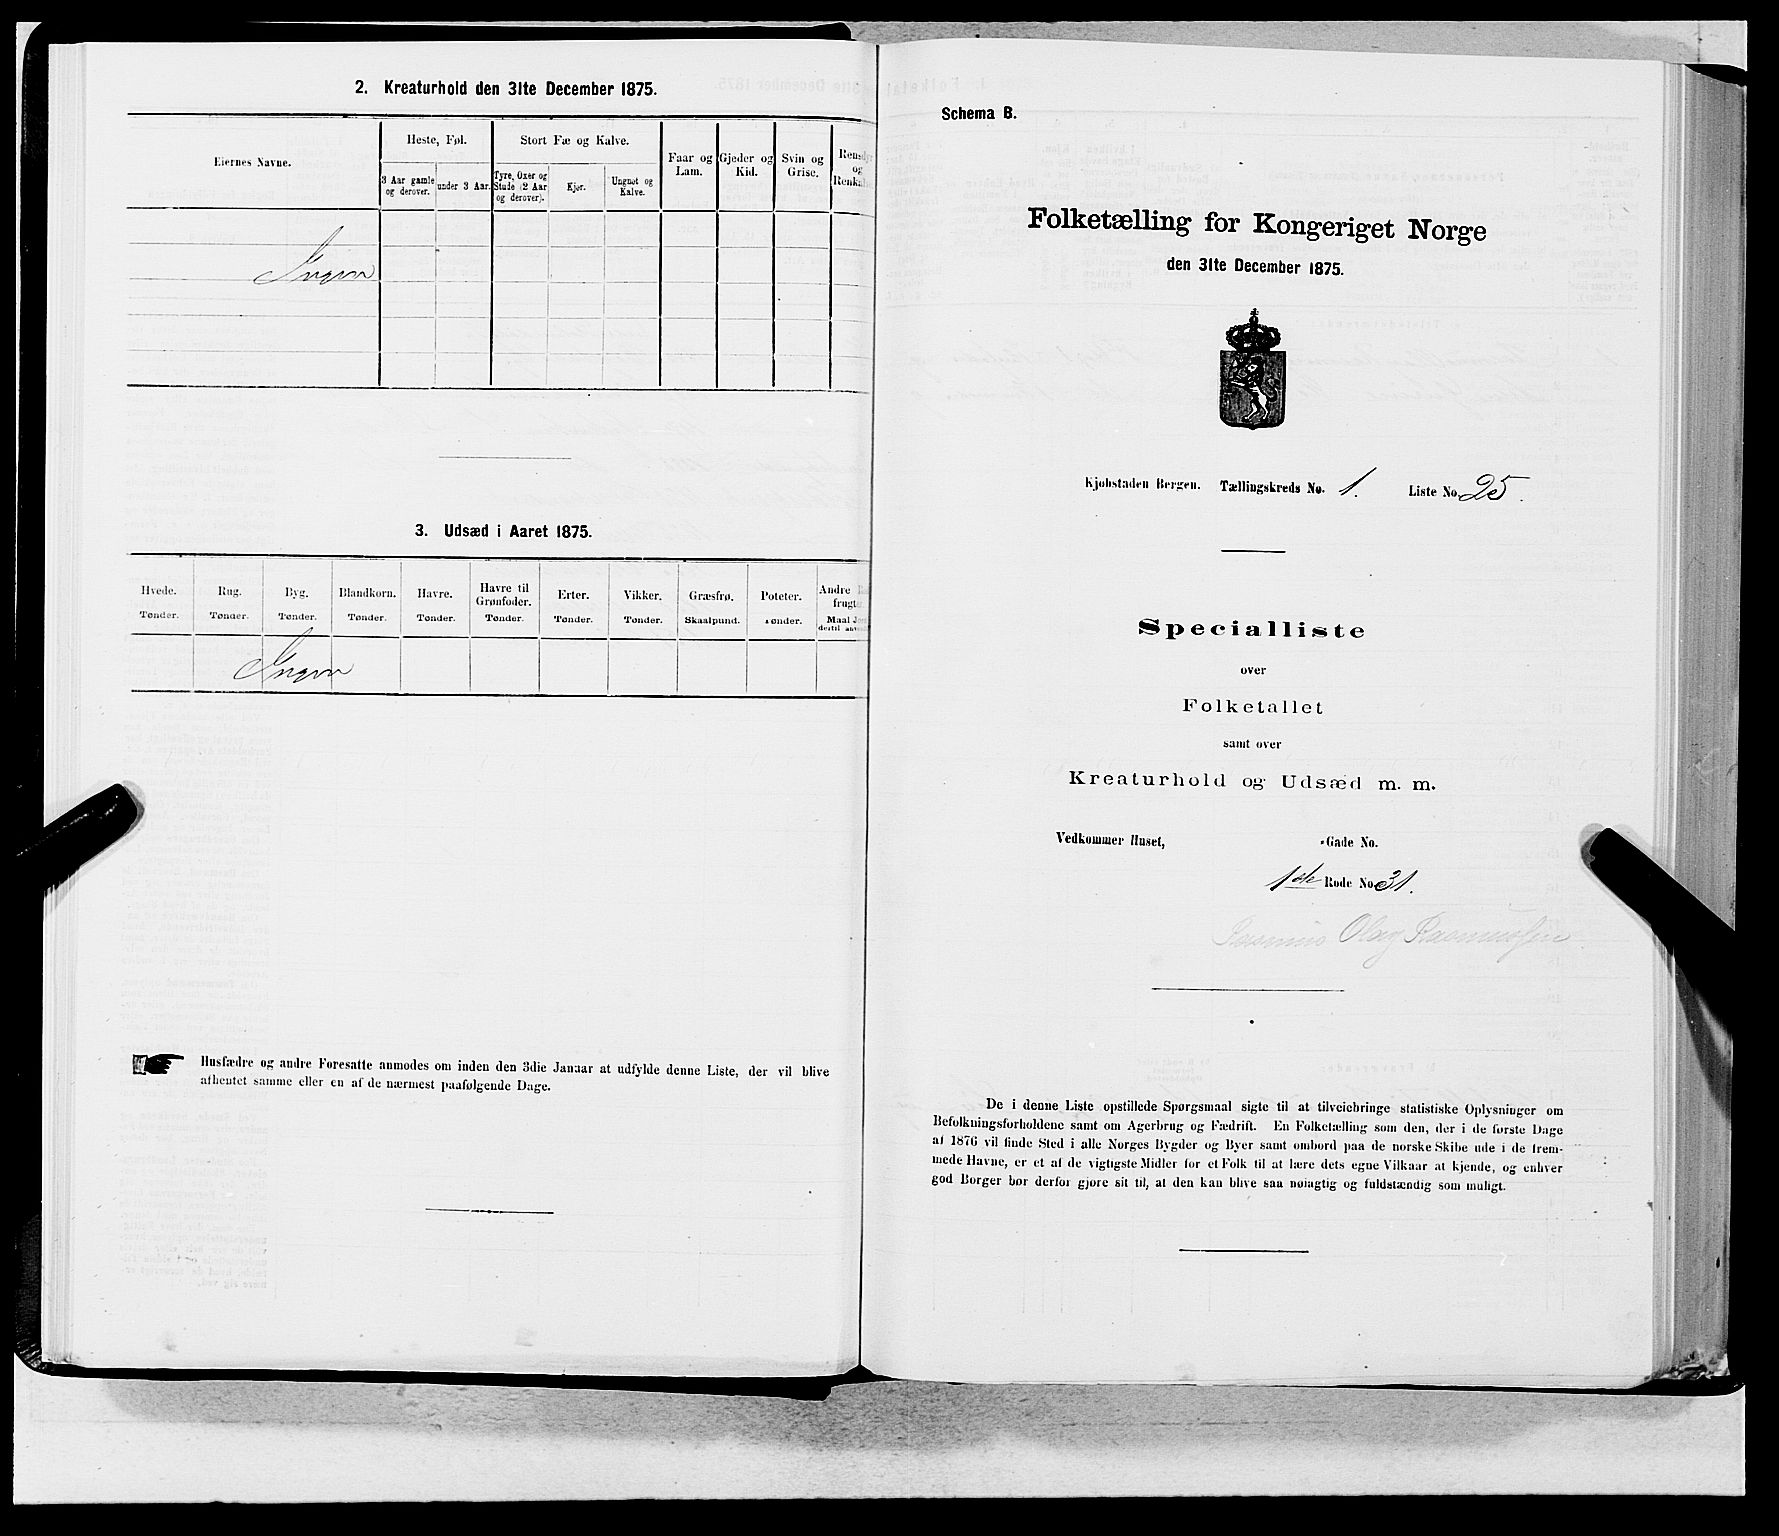 2. Kreaturhold den 31te December 1875.
Eiernes Navne.
Heste, Føl.
Stort Fæ og Kalve.
Faar og Lam.
Gjeder og Kid.
Svin og Grise.
Rensdyr og Renkal
3 Aar gamle og derover.
under 3 Aar.
Tyre, Oxer og Stude (2 Aar og derover).
Kjør.
Ungnøt og Kalve.
Ingen
3. Udsæd i Aaret 1875.
Hvede. Rug. Byg. Blandkorn. Havre. Havre til Grønfoder. Erter. Vikker. Græsfrø. Poteter. Andre frugt
Tønder. Tønder. Tønder. Tønder. Tønder. Tønder. Tønder. Tønder. Skaalpund. Tønder. Maal Jord dertil anven
Ingen
Husfædre og andre Foresatte anmodes om inden den 3die Januar at udfylde denne Liste, der vil blive
afhentet samme eller en af de nærmest paafølgende Dage.
Schema B.
Folketælling for Kongeriget Norge
den 31te December 1875.
Kjøbstaden Bergen. Tællingskreds No. 1. Liste No. 25.
Specialliste
over
Folketallet
samt over
Kreaturhold og Udsæd m. m.
Vedkommer Huset, -Gade No.
1ste Rode No 31.
Rasmus Olay Rasmussen
De i denne Liste opstillede Spørgsmaal sigte til at tilveiebringe statistiske Oplysninger om
Befolkningsforholdene samt om Agerbrug og Fædrift. En Folketælling som den, der i de første Dage
af 1876 vil finde Sted i alle Norges Bygder og Byer samt ombord paa de norske Skibe ude i de frem-
mede Havne, er et af de vigtigste Midler for et Folk til at lære dets egne Vilkaar at kjende, og enhver
god Borger bør derfor gjøre sit til, at den kan blive saa nøiagtig og fuldstændig som muligt.